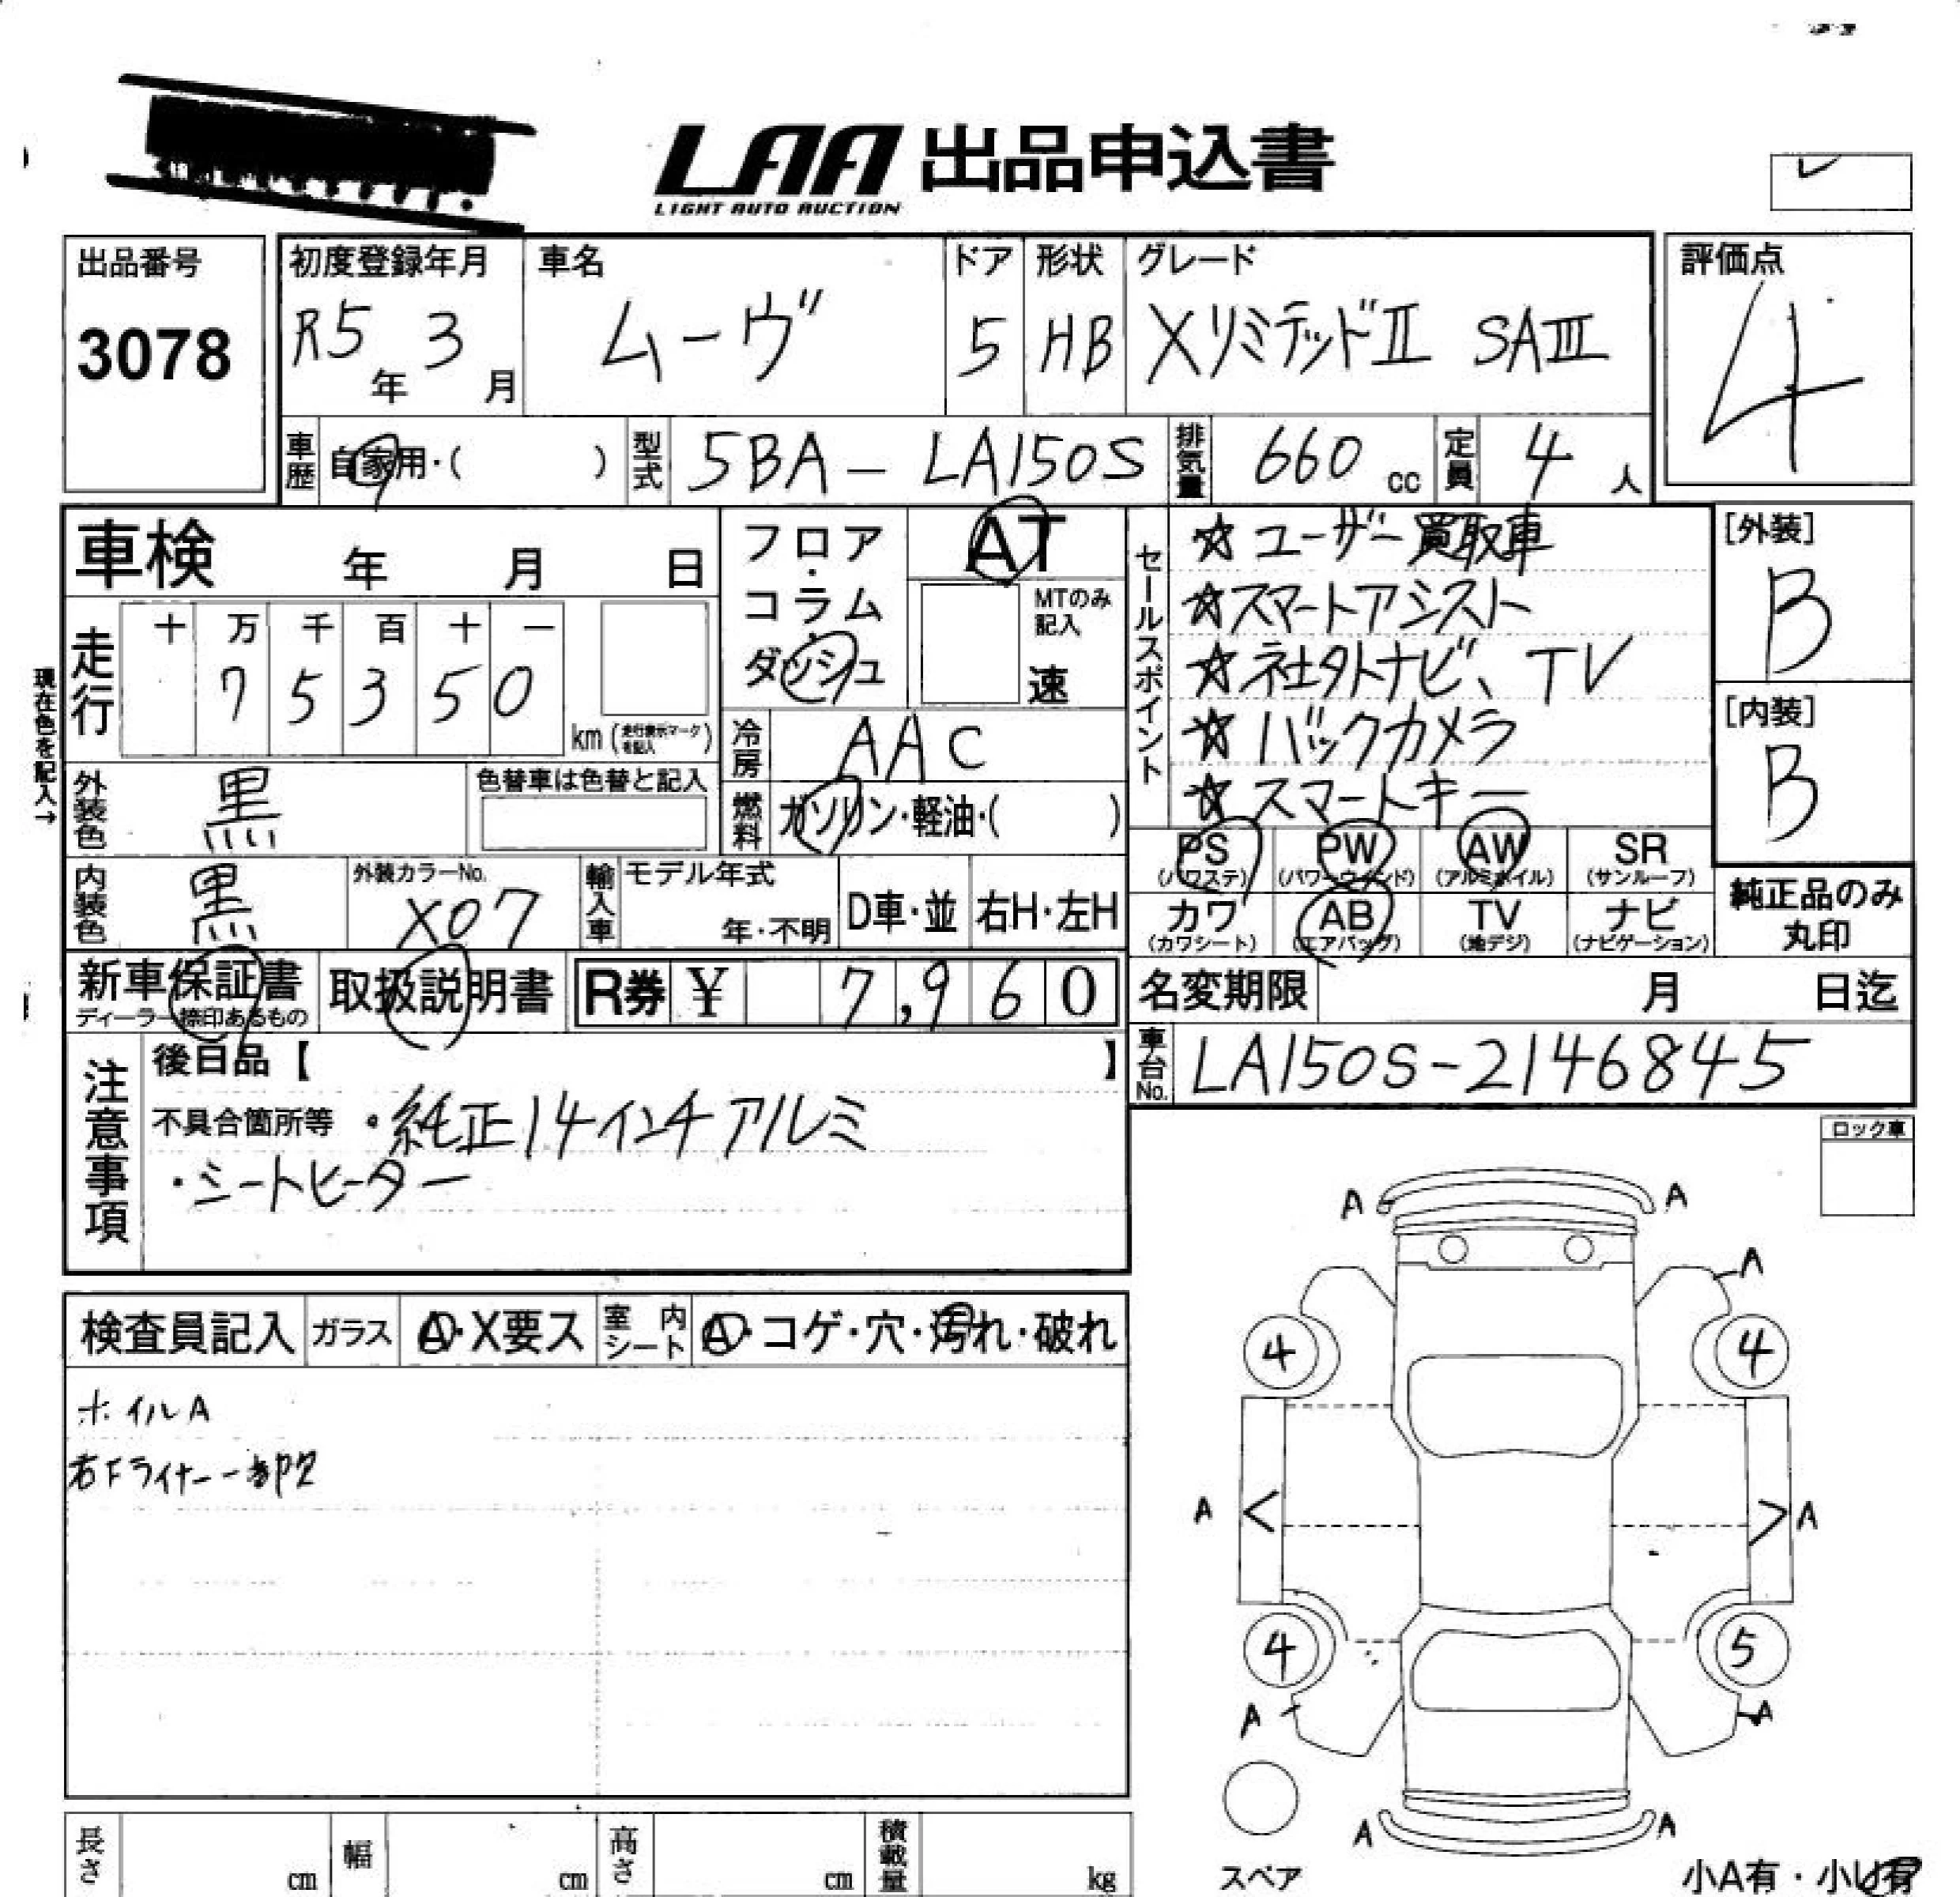 LAA 出品申込書
LIGHT AUTO AUCTION
出品番号
3078
初度登録年月
R5年 3月
車名
ムーヴ
ドア
5
形状
HB
グレード
XリミテッドII SAIII
評価点
4
車歴 自家用・( )
型式 5BA-LA150S
排気量 660 cc
定員 4 人
車検 年 月 日
フロア・コラム・ダッシュ
AT
MTのみ記入
速
走行
十 万 千 百 十 一
7 5 3 5 0
km (走行表示マークを記入)
現在色を記入→
冷房 AAC
燃料 ガソリン・軽油・( )
外装色 黒
色替車は色替と記入
内装色 黒
外装カラーNo.
X07
輸入車
モデル年式
年・不明
D車・並
右H・左H
セールスポイント
☆ユーザー買取車
☆スマートアシスト
☆社外ナビ、TV
☆バックカメラ
☆スマートキー
[外装]
B
[内装]
B
PS (パワステ)
PW (パワーウインド)
AW (アルミホイル)
SR (サンルーフ)
カワ (カワシート)
AB (エアバッグ)
TV (地デジ)
ナビ (ナビゲーション)
純正品のみ丸印
新車保証書
ディーラー捺印あるもの
取扱説明書
R券 ¥ 7,960
名変期限 月 日迄
車台No. LA150S-2146845
注意事項
後日品【 】
不具合箇所等 ・純正14インチアルミ
・シートヒーター
ロック車
検査員記入
ガラス A・X要ス
室内シート A・コゲ・穴・汚れ・破れ
ホイルA
右Fライナー一部欠
A A
A
4 4
A < > A
4 5
A A
A A
スペア
小A有・小U有
長さ cm
幅 cm
高さ cm
積載量 kg